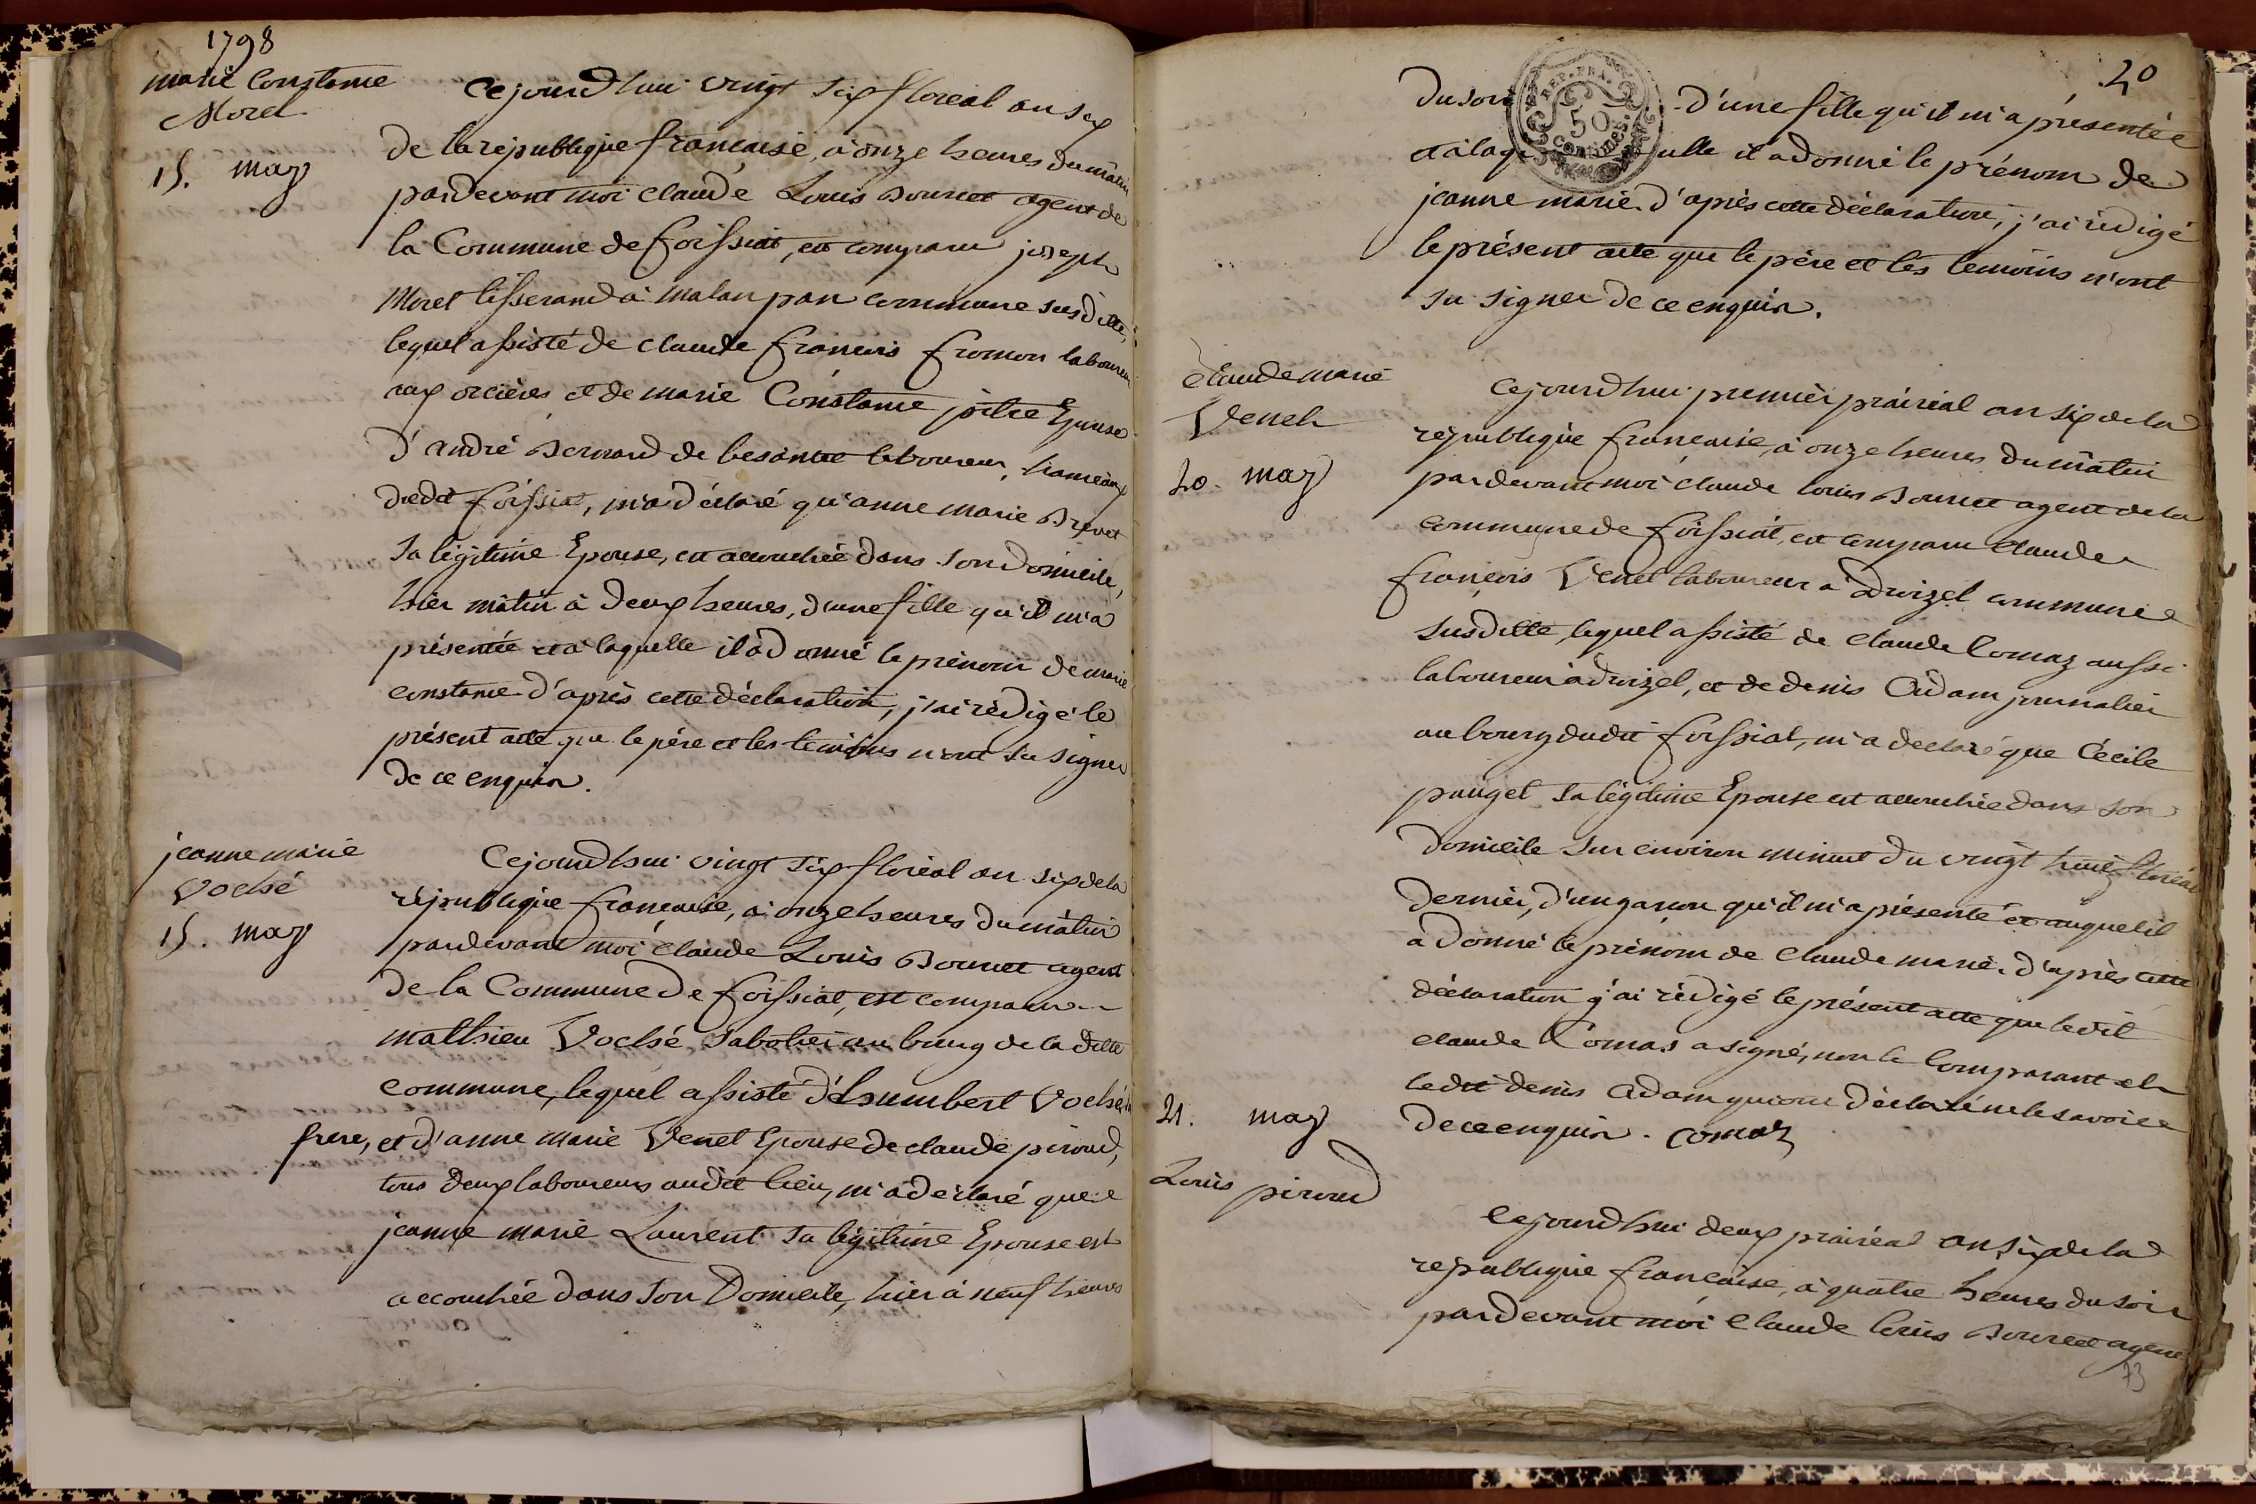 1798
marie Constance
Morel
15. may
Cejourd'hui vingt six floreal an six
de la république française, à onze heures du mâtin
pardevant moi claude Louis Bourcet agent de
la Commune de foissiat, est comparu joseph
Morel tisserand à malaupan commune susditte,
lequel assisté de claude françois fromon laboureur
aux orcières et de marie Constance pitre Epouse
d'andré Bernard de besante laboureur, hameaux
dudit foissiat, m'a déclaré qu'anne marie Brevet
sa légitime Epouse, est accouchée dans son domicile,
hier mâtin à deux heures, d'une fille qu'il m'a
présentée et à laquelle il a donné le prénom de marie
constance. d'après cette déclaration, j'ai rédigé le
présent acte que le père et les temoins n'ont su signer
de ce enquis.
jeanne marie
Voché
15. may
Cejourd'hui vingt six floréal an six de la
république française, à onze heures du mâtin
pardevant moi claude Louis Bourcet agent
de la Commune de foissiat, est comparu
mathieu Voché sabotier au bourg de la ditte
commune, lequel assisté d'humbert Voché,
frere, et d'anne marie Venet Epouse de claude piroud,
tous deux laboureurs audit lieu, m'a déclaré que
jeanne marie Laurent sa légitime Epouse est
accouchée dans son Domicile, hier à neuf heures
20
du soir d'une fille qu'il m'a présentée
REP. FRA.
50
Centimes.
et à laquelle il a donné le prénom de
jeanne marie. d'après cette déclaration, j'ai rédigé
le présent acte que le père et les temoins n'ont
su signer de ce enquis.
Claude marie
Venet
20. may
Cejourd'hui premier prairial an six de la
république française, à onze heures du mâtin
pardevant moi claude louis Bourcet agent de la
commune de foissiat, est comparu claude
françois Venet laboureur à droizel commune
susditte, lequel assisté de claude Comaz aussi
laboureur à droizel, et de denis Adam journalier
au bourg dudit foissiat, m'a declaré que Cécile
pauget sa légitime Epouse est accouchée dans son
domicile sur environ minuit du vingt huit floréal
dernier, d'un garçon qu'il m'a présenté et auquel il
a donné le prénom de claude marie. d'après cette
déclaration j'ai rédigé le présent acte que ledit
claude Comas a signé, non le Comparant et
ledit denis Adam qui ont déclaré ne le savoir
de ce enquis. comaz
21. may
Louis piroud
Cejourd'hui deux prairéal an six de la
république française, à quatre heures du soir
pardevant moi Claude louis Bourcet agent
73